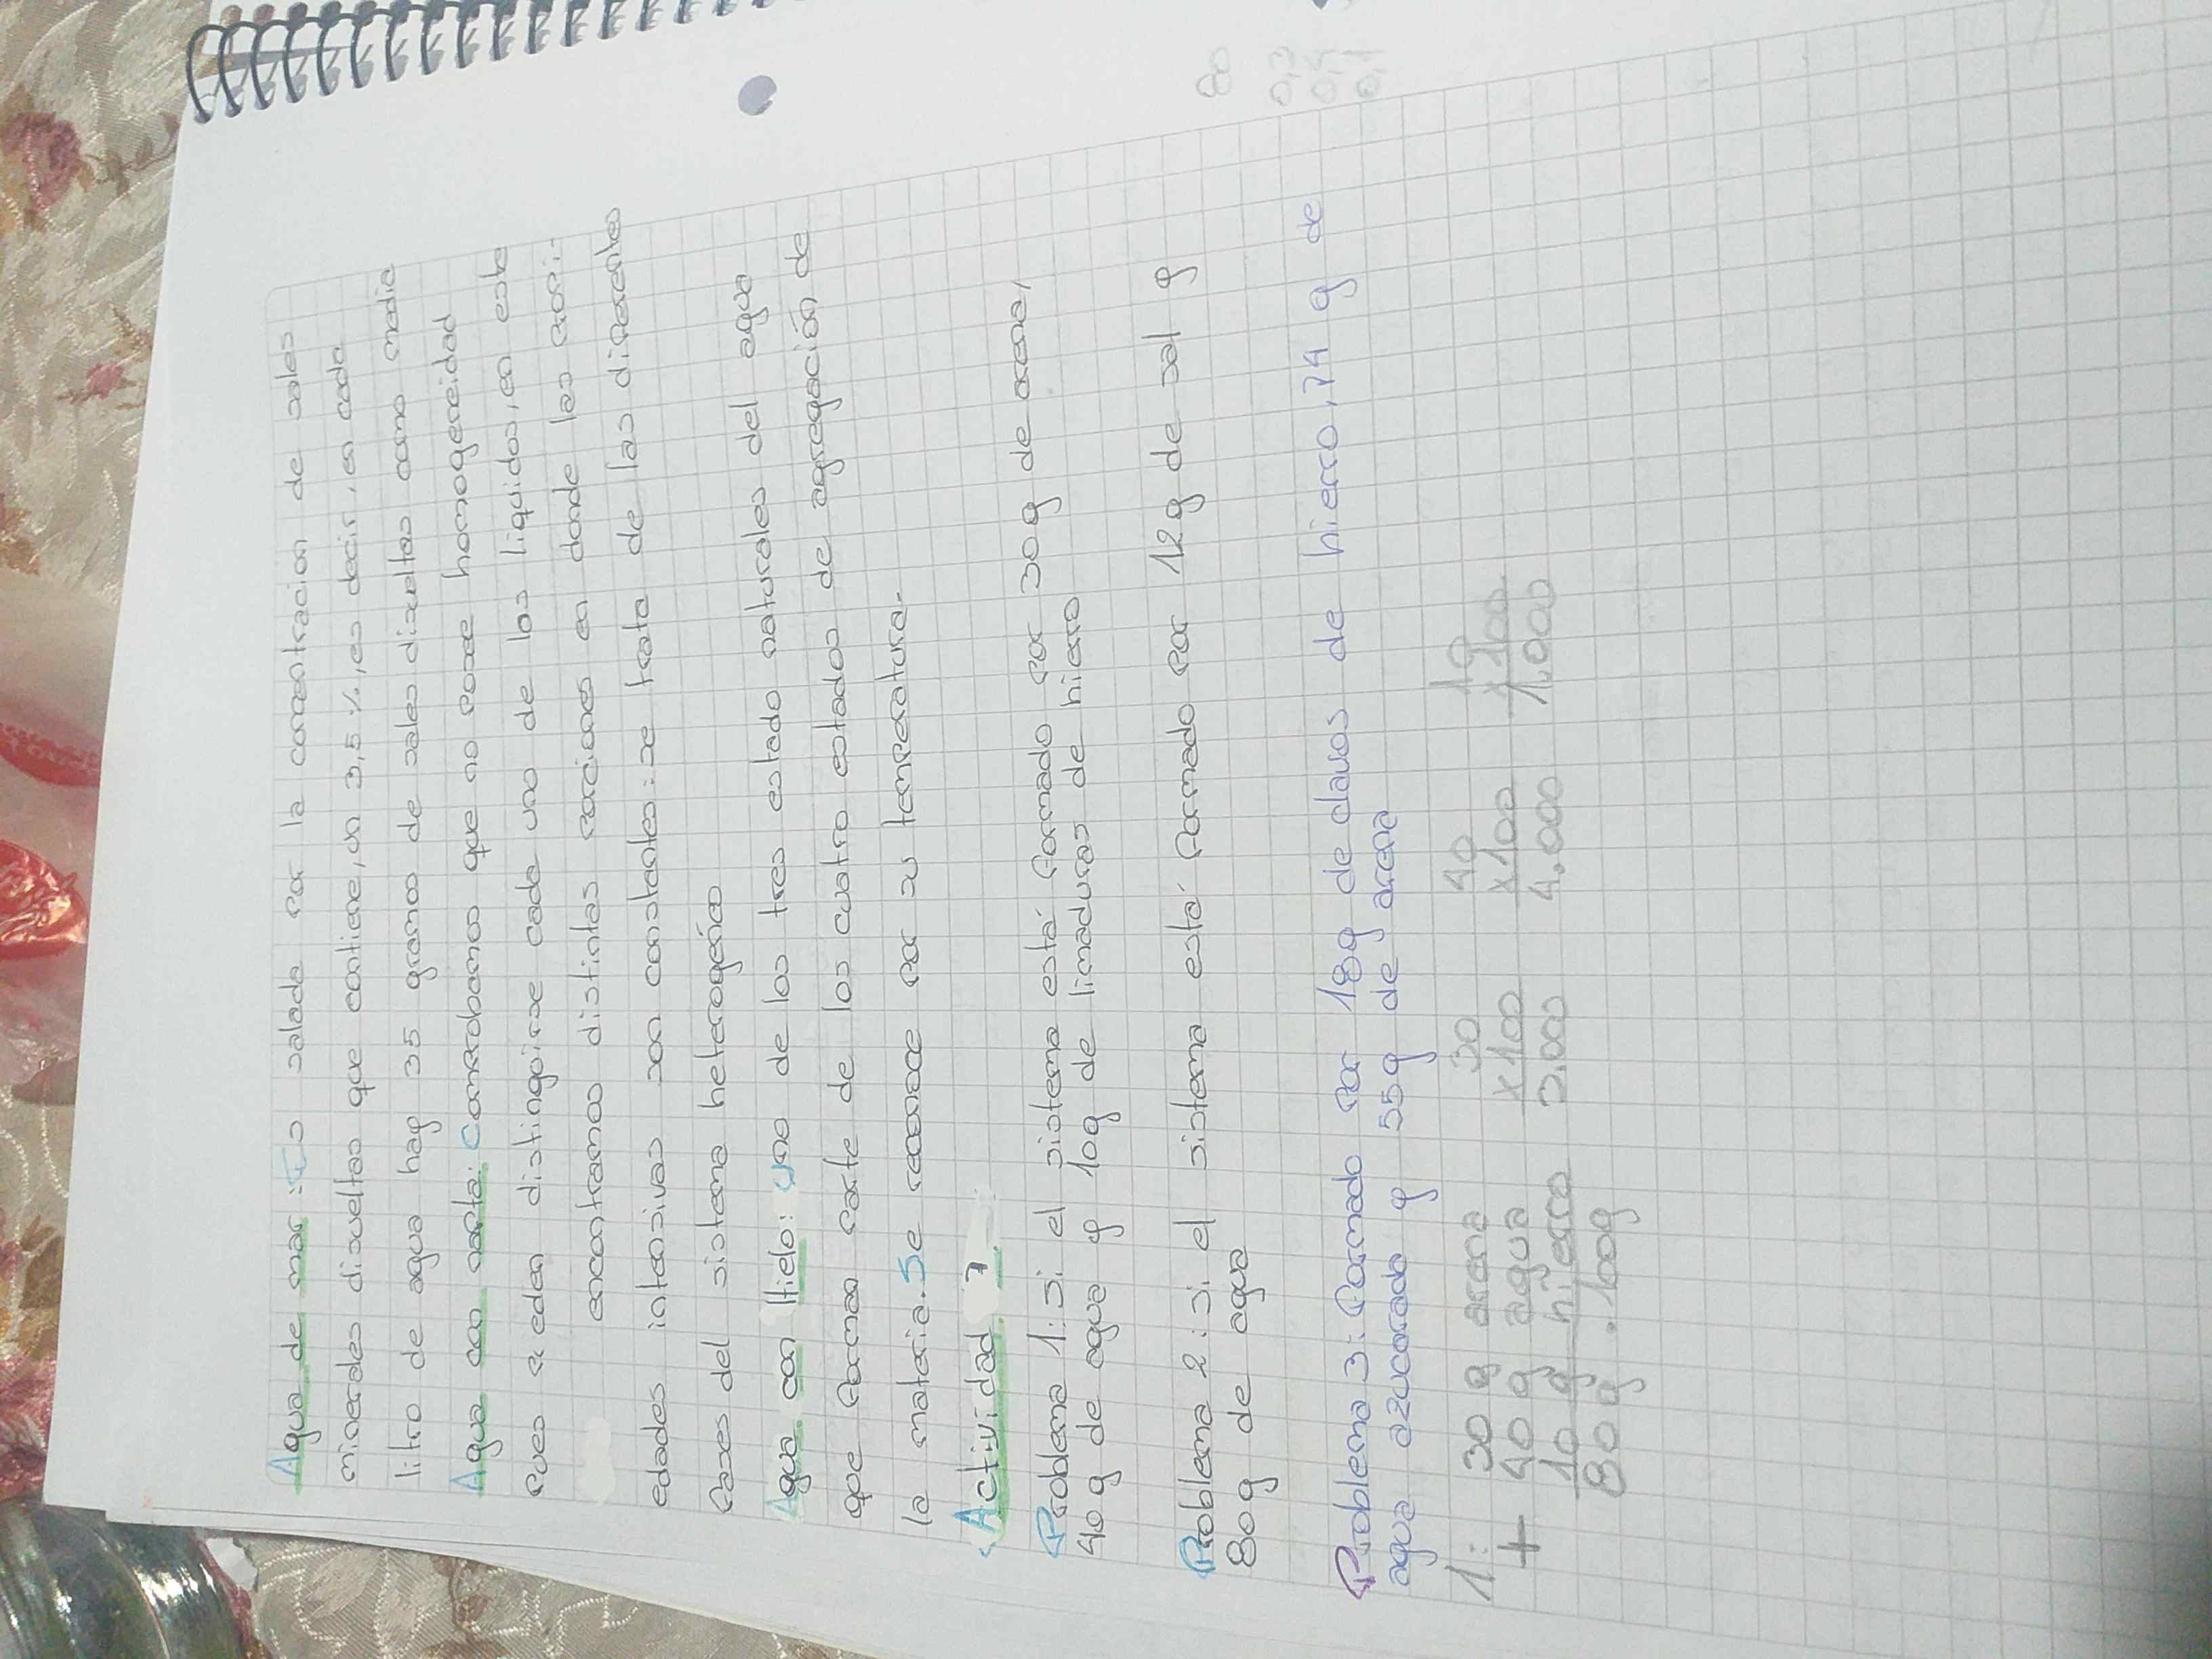 Agua de mar: Es salada por la concentracion de sales
minerales disueltas que contiene, un 3,5%, es decir, en cada
litro de agua hay 35 gramos de sales disueltas como media
Agua con nafta: Comprobamos que no posee homogeneidad
pues distinguirse cada uno de los liquidos, en este
encontramos distintas porciones en donde las propi-
edades intensivas son constantes: se trata de las diferentes
fases del sistema heterogéneo
Agua con Hielo: uno de los tres estado naturales del agua
que forman parte de los cuatro estados de agregación de
la materia. Se reconoce por su temperatura.
Actividad 7
Problema 1: si el sistema está formado por 30g de arena,
40g de agua y 10g de limaduras de hierro
Problema 2: si el sistema está formado por 12g de sal y
80g de agua
Problema 3: Formado por 18g de clavos de hierro, 74 g de
agua azucarada y 55g de arena
1: 30 g arena 30 40 10
+ 40 g agua x100 x100 x100
10 g hierro 3.000 4.000 1.000
80g .100g
80
0,3
0,4
0,1